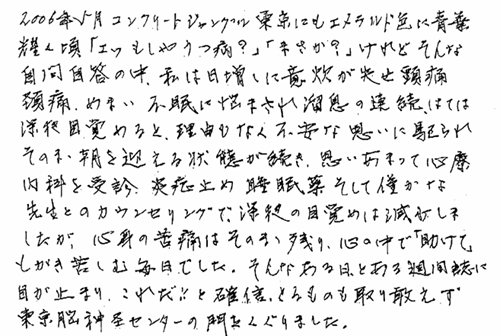 2006年5月コンクリートジャングル東京にもエメラルド色に青葉
輝く頃「エッもしやうつ病?」「まさか?」けれどそんな
自問自答の中、私は日増しに意欲が失せ頭痛
頚痛、めまい不眠に悩まされ溜息の連続はては
深夜目覚めると、理由もなく不安な思いに駆られ
そのまゝ朝を迎える状態が続き、思いあまって心療
内科を受診、炎症止め睡眠薬そして僅かな
先生とのカウンセリングで、深夜の目覚めは減少しま
したが、心身の苦痛はそのまゝ残り、心の中で「助けて」
もがき苦しむ毎日でした。そんなある日とある週間誌に
目が止まり、これだ!!と確信、とるものも取り敢えず
東京脳神経センターの門をくぐりました。